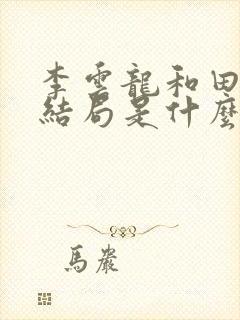 李雲龍和田
結局是什麼
馬嚴